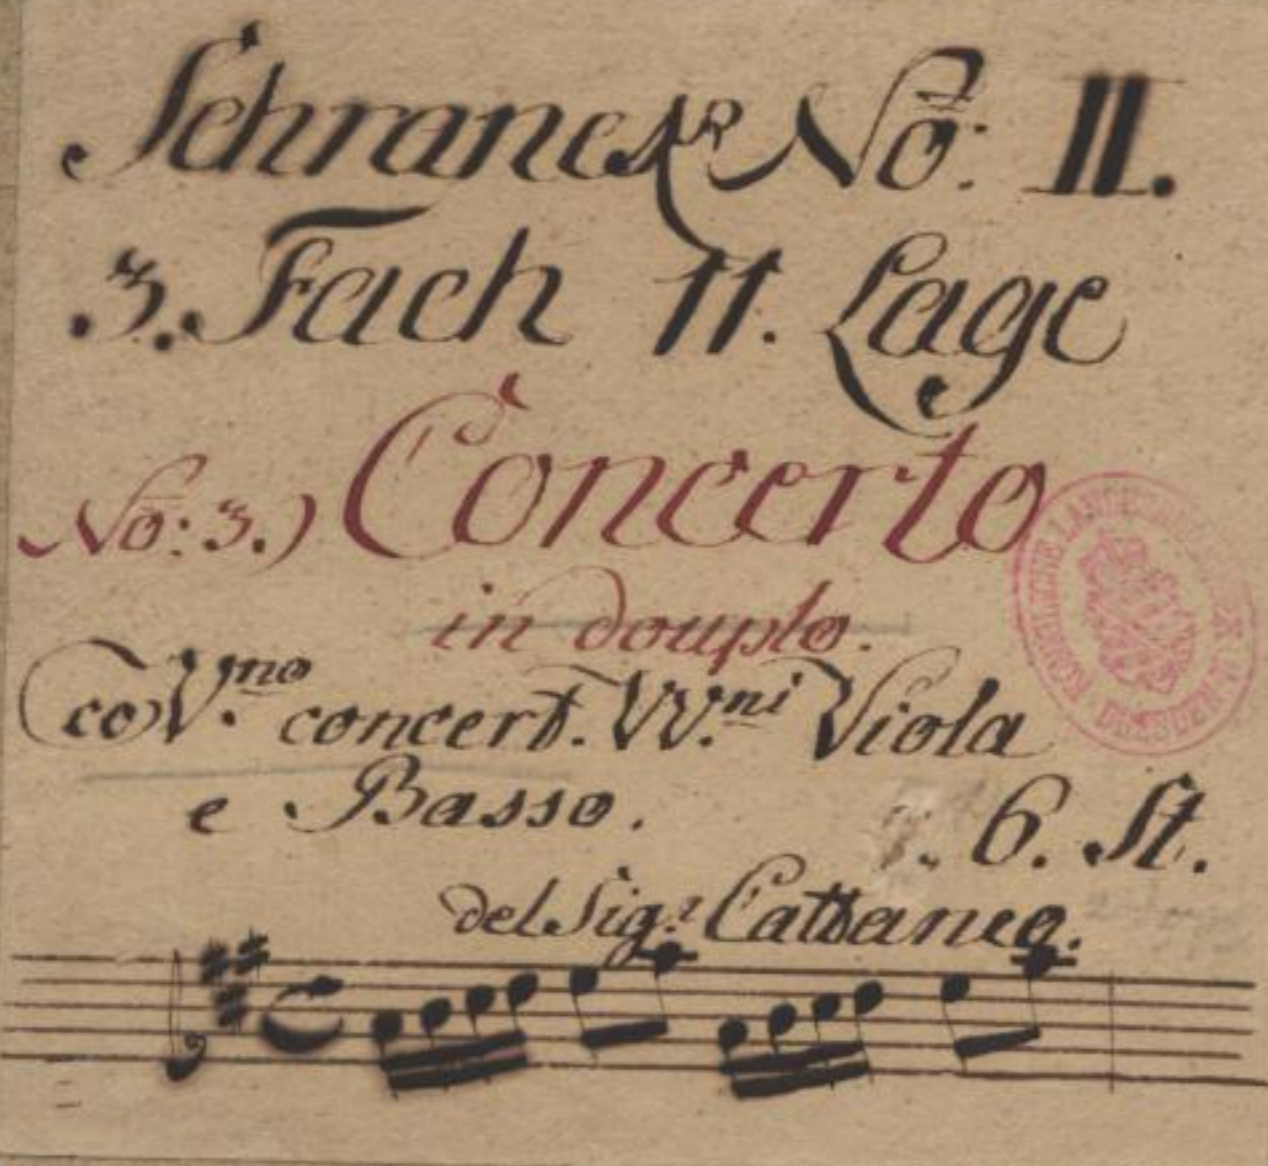 Schranck No: II.
3. Fach 11. Lage
No: 3.) Concerto
in douplo.
co V.no concert. VV.ni Viola
e Basso.
6. St.
del Sig.r Cattaneo.